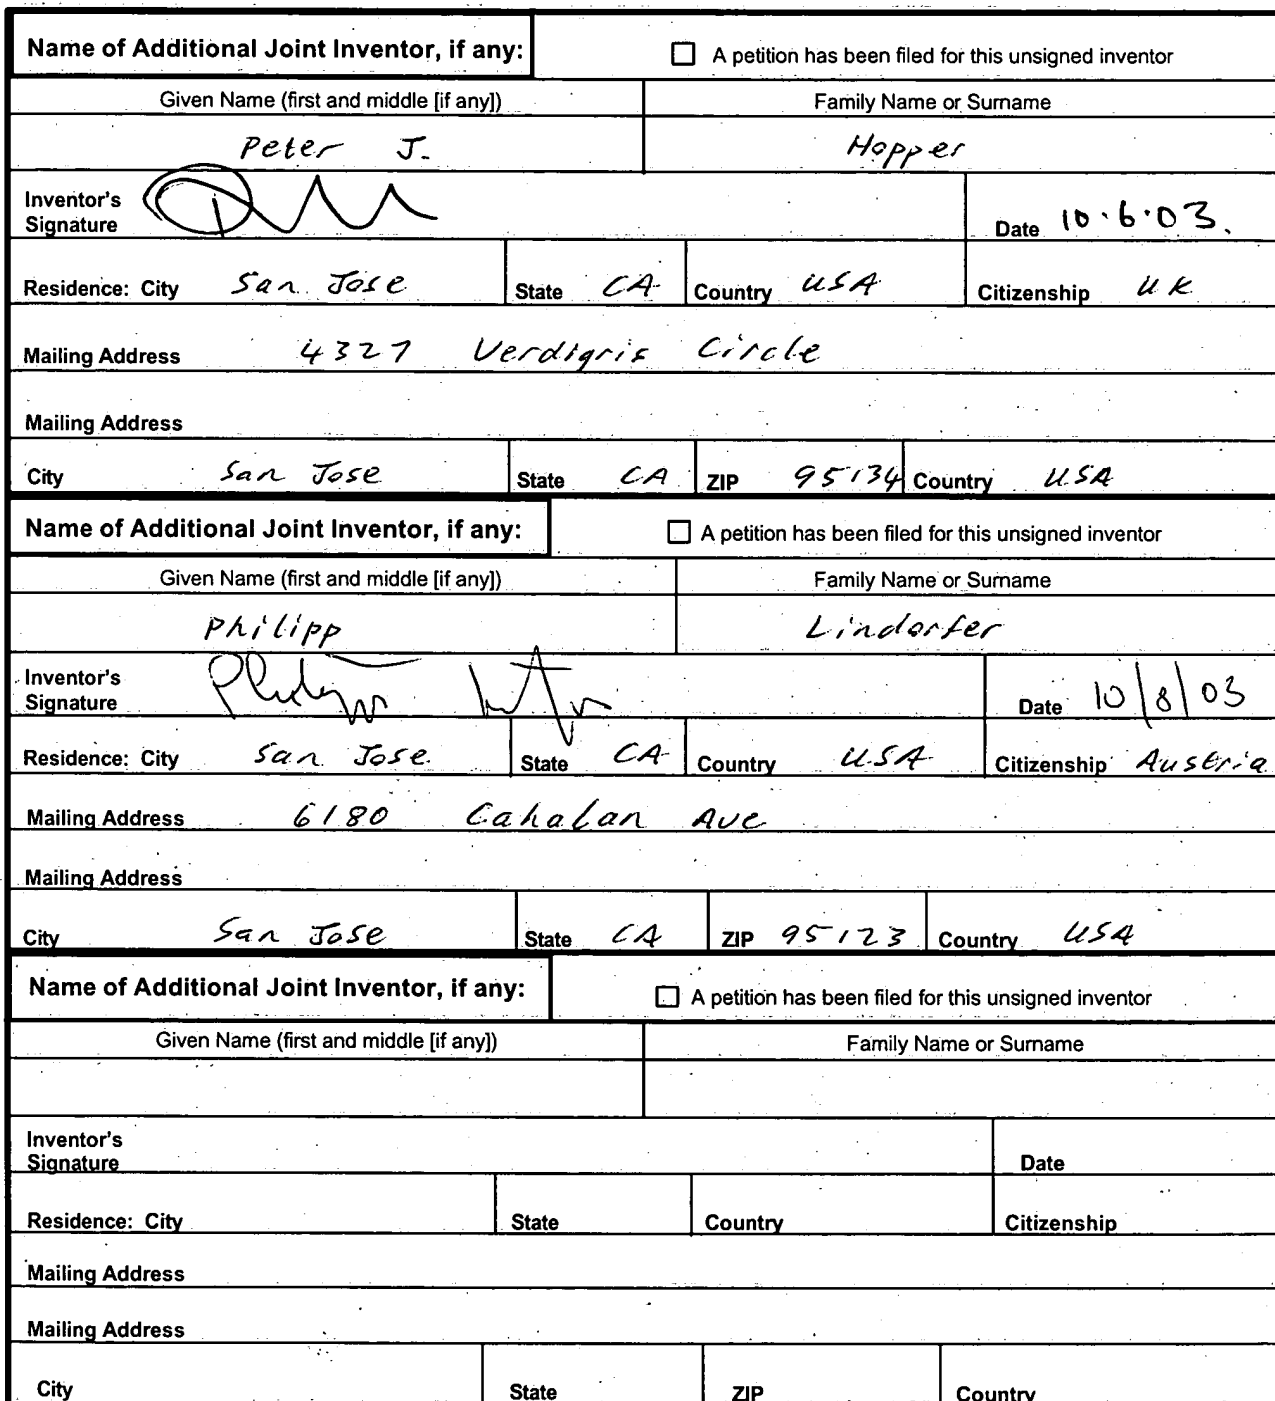 Name of Additional Joint Inventor, if any: ☐ A petition has been filed for this unsigned inventor
Given Name (first and middle [if any]) Family Name or Surname
Peter J. Hopper
Inventor's
Signature Date 10.6.03.
Residence: City San Jose State CA Country USA Citizenship UK
Mailing Address 4327 Verdigris Circle
Mailing Address
City San Jose State CA ZIP 95134 Country USA
Name of Additional Joint Inventor, if any: ☐ A petition has been filed for this unsigned inventor
Given Name (first and middle [if any]) Family Name or Surname
Philipp Lindorfer
Inventor's
Signature Date 10/8/03
Residence: City San Jose State CA Country USA Citizenship Austria
Mailing Address 6180 Cahalan Ave
Mailing Address
City San Jose State CA ZIP 95123 Country USA
Name of Additional Joint Inventor, if any: ☐ A petition has been filed for this unsigned inventor
Given Name (first and middle [if any]) Family Name or Surname
Inventor's
Signature Date
Residence: City State Country Citizenship
Mailing Address
Mailing Address
City State ZIP Country